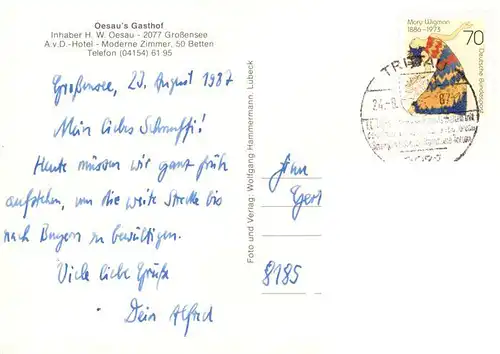 Oesau's Gasthof
Inhaber H. W. Oesau - 2077 Großensee
A.v.D.-Hotel - Moderne Zimmer, 50 Betten
Telefon (04154) 61 95
Großensee, 23. August 1987
Mein liebes Schnuffi!
Heute müssen wir ganz früh
aufstehen, um die weite Strecke bis
nach Bayern zu bewältigen.
Viele liebe Grüße
Dein Alfred
Foto und Verlag: Wolfgang Hammermann, Lübeck
Mary Wigman
1886-1973
70
Deutsche Bundespost
TRITTAU
24.-8.
87
8185